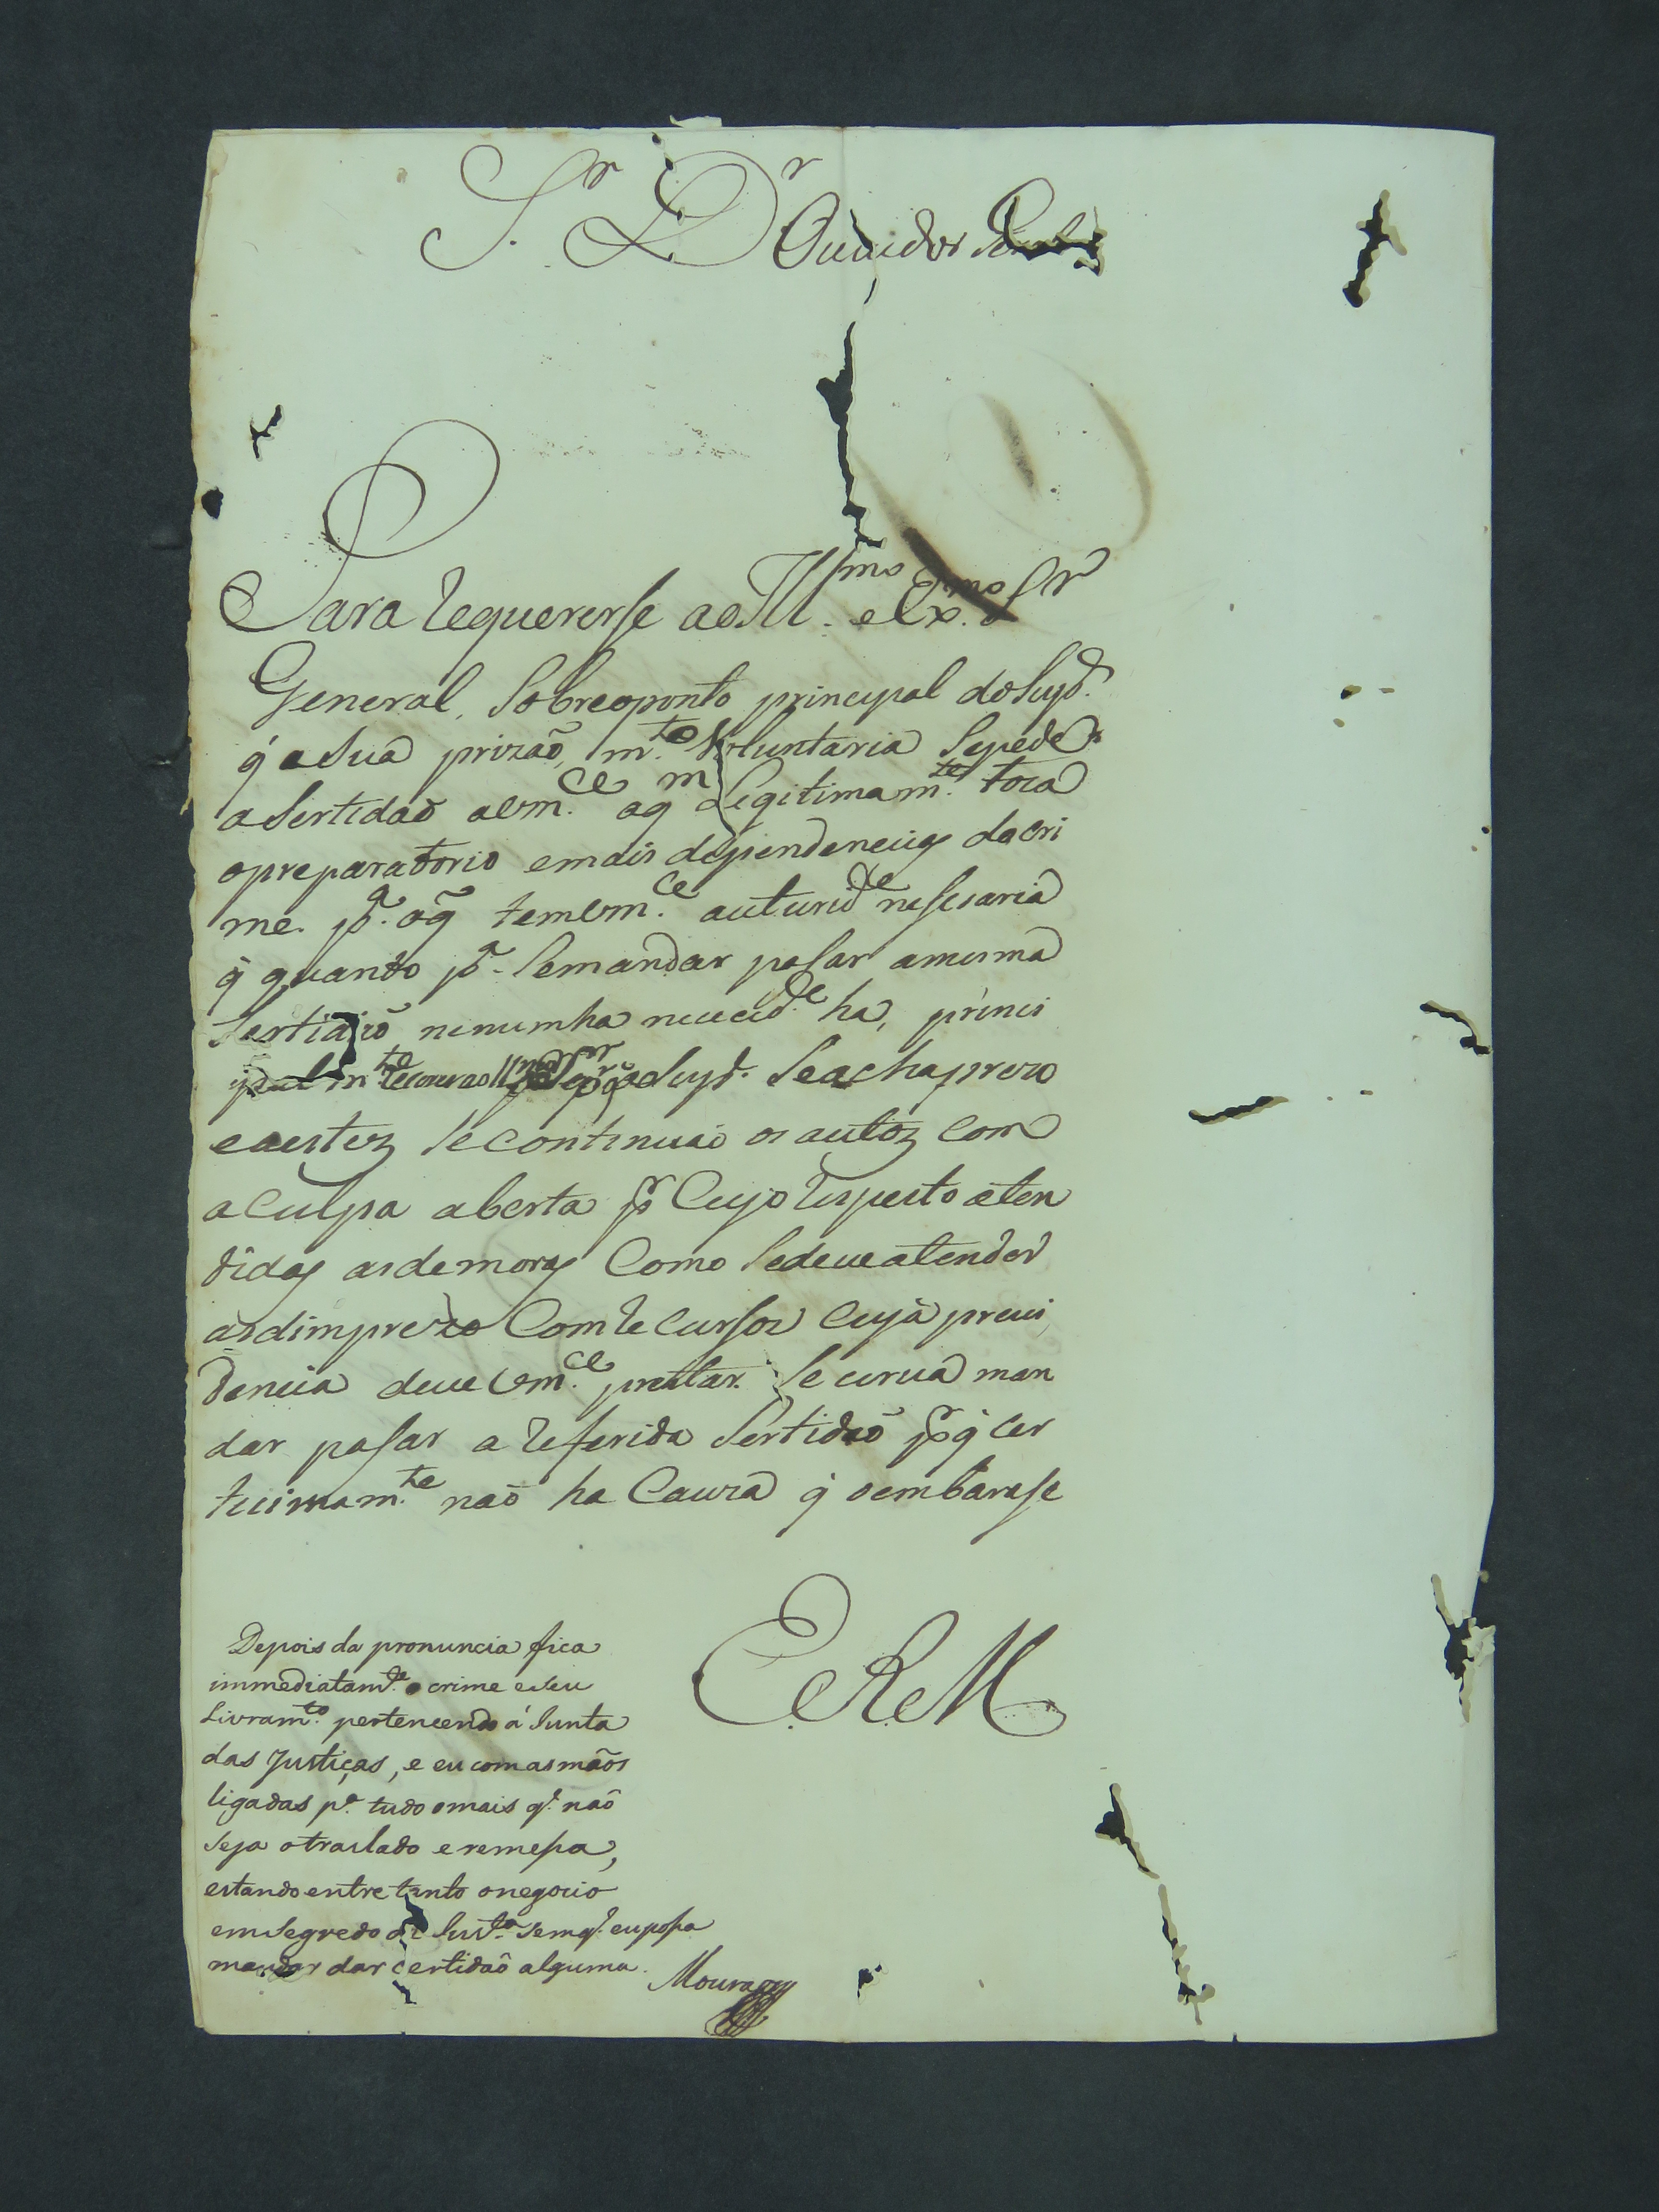 Sr. Dr Ouuidor
Para requererse ao Illmo. e Exmo. Sr
General, sobre o ponto principal do Supd.
q̃ a Sua prizaõ, mto. Voluntaria Se pede
a Sertidaõ a vmce. a qm Legitimamte. toca
o preparatorio e mais dependencias do cri
me. pa. o q̃ tem vmce. auturide nesesaria
q̃ quando pa. Se mandar pasar a mesma
Sertidaõ nenumha nececide. ha, princi
palmte o Supd. Se acha prezo
e a estez Se continuaõ os autoz com
a Culpa aberta pr Cujo respeito aten
didas as demoras Como Se deue atender
as dimprezo Com recursos Cuja proui
dencia deue vmce. prestar. Se cirua man
dar pasar a referida Sertidaõ pr q̃ cer
tisimamte. naõ ha Cauza q̃ o embarase
E. R. M
Depois da pronuncia fica
immediatamte. o crime e seu
Livramto. pertencendo á Junta
das Justiças, e eu com as mãos
ligadas pa. tudo o mais q̃. naõ
seja o traslado e remessa,
estando entre tanto o negocio
em segredo de Justa. sem q̃. eu possa
mandar dar certidaõ alguma.
Moura